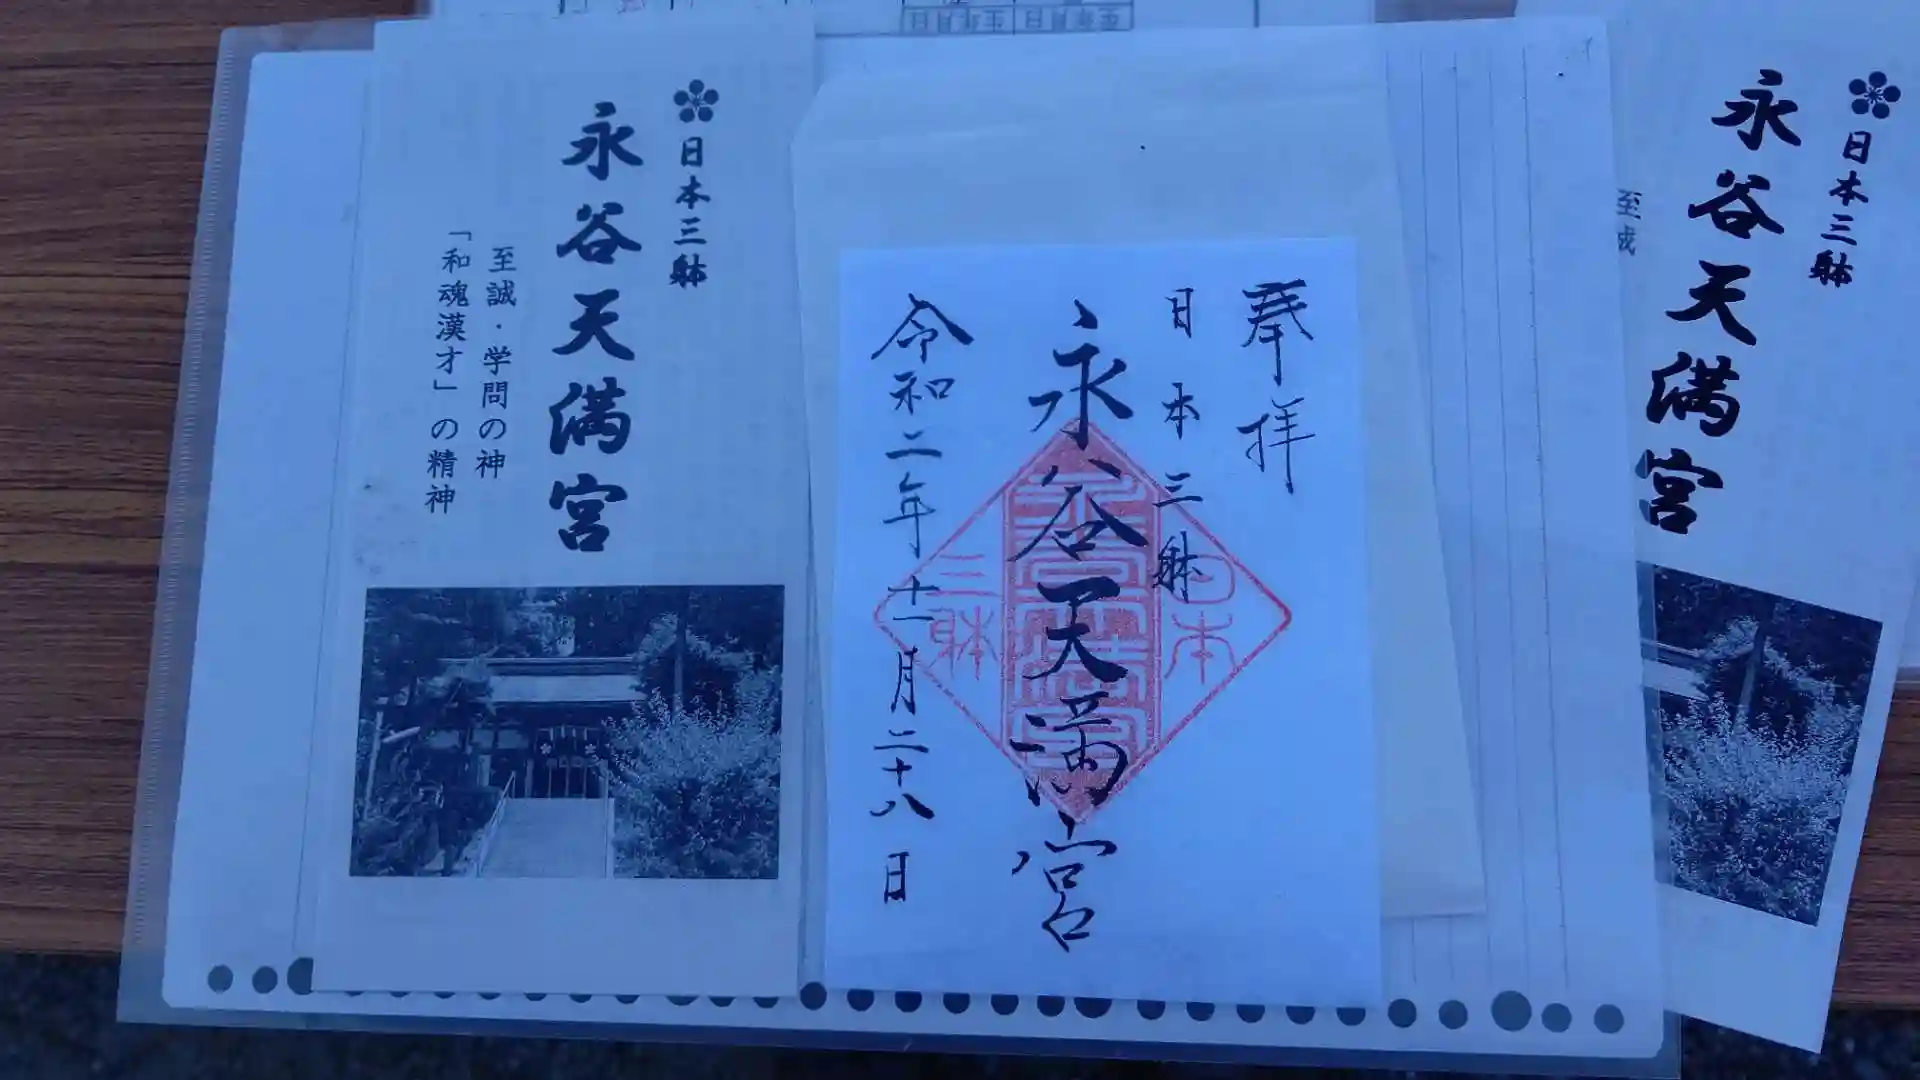 日本三躰
永谷天満宮
至誠・学問の神
「和魂漢才」の精神
奉拝
日本三躰
永谷天満宮
令和二年十一月二十八日
日本
三躰
日本三躰
永谷天満宮
至誠